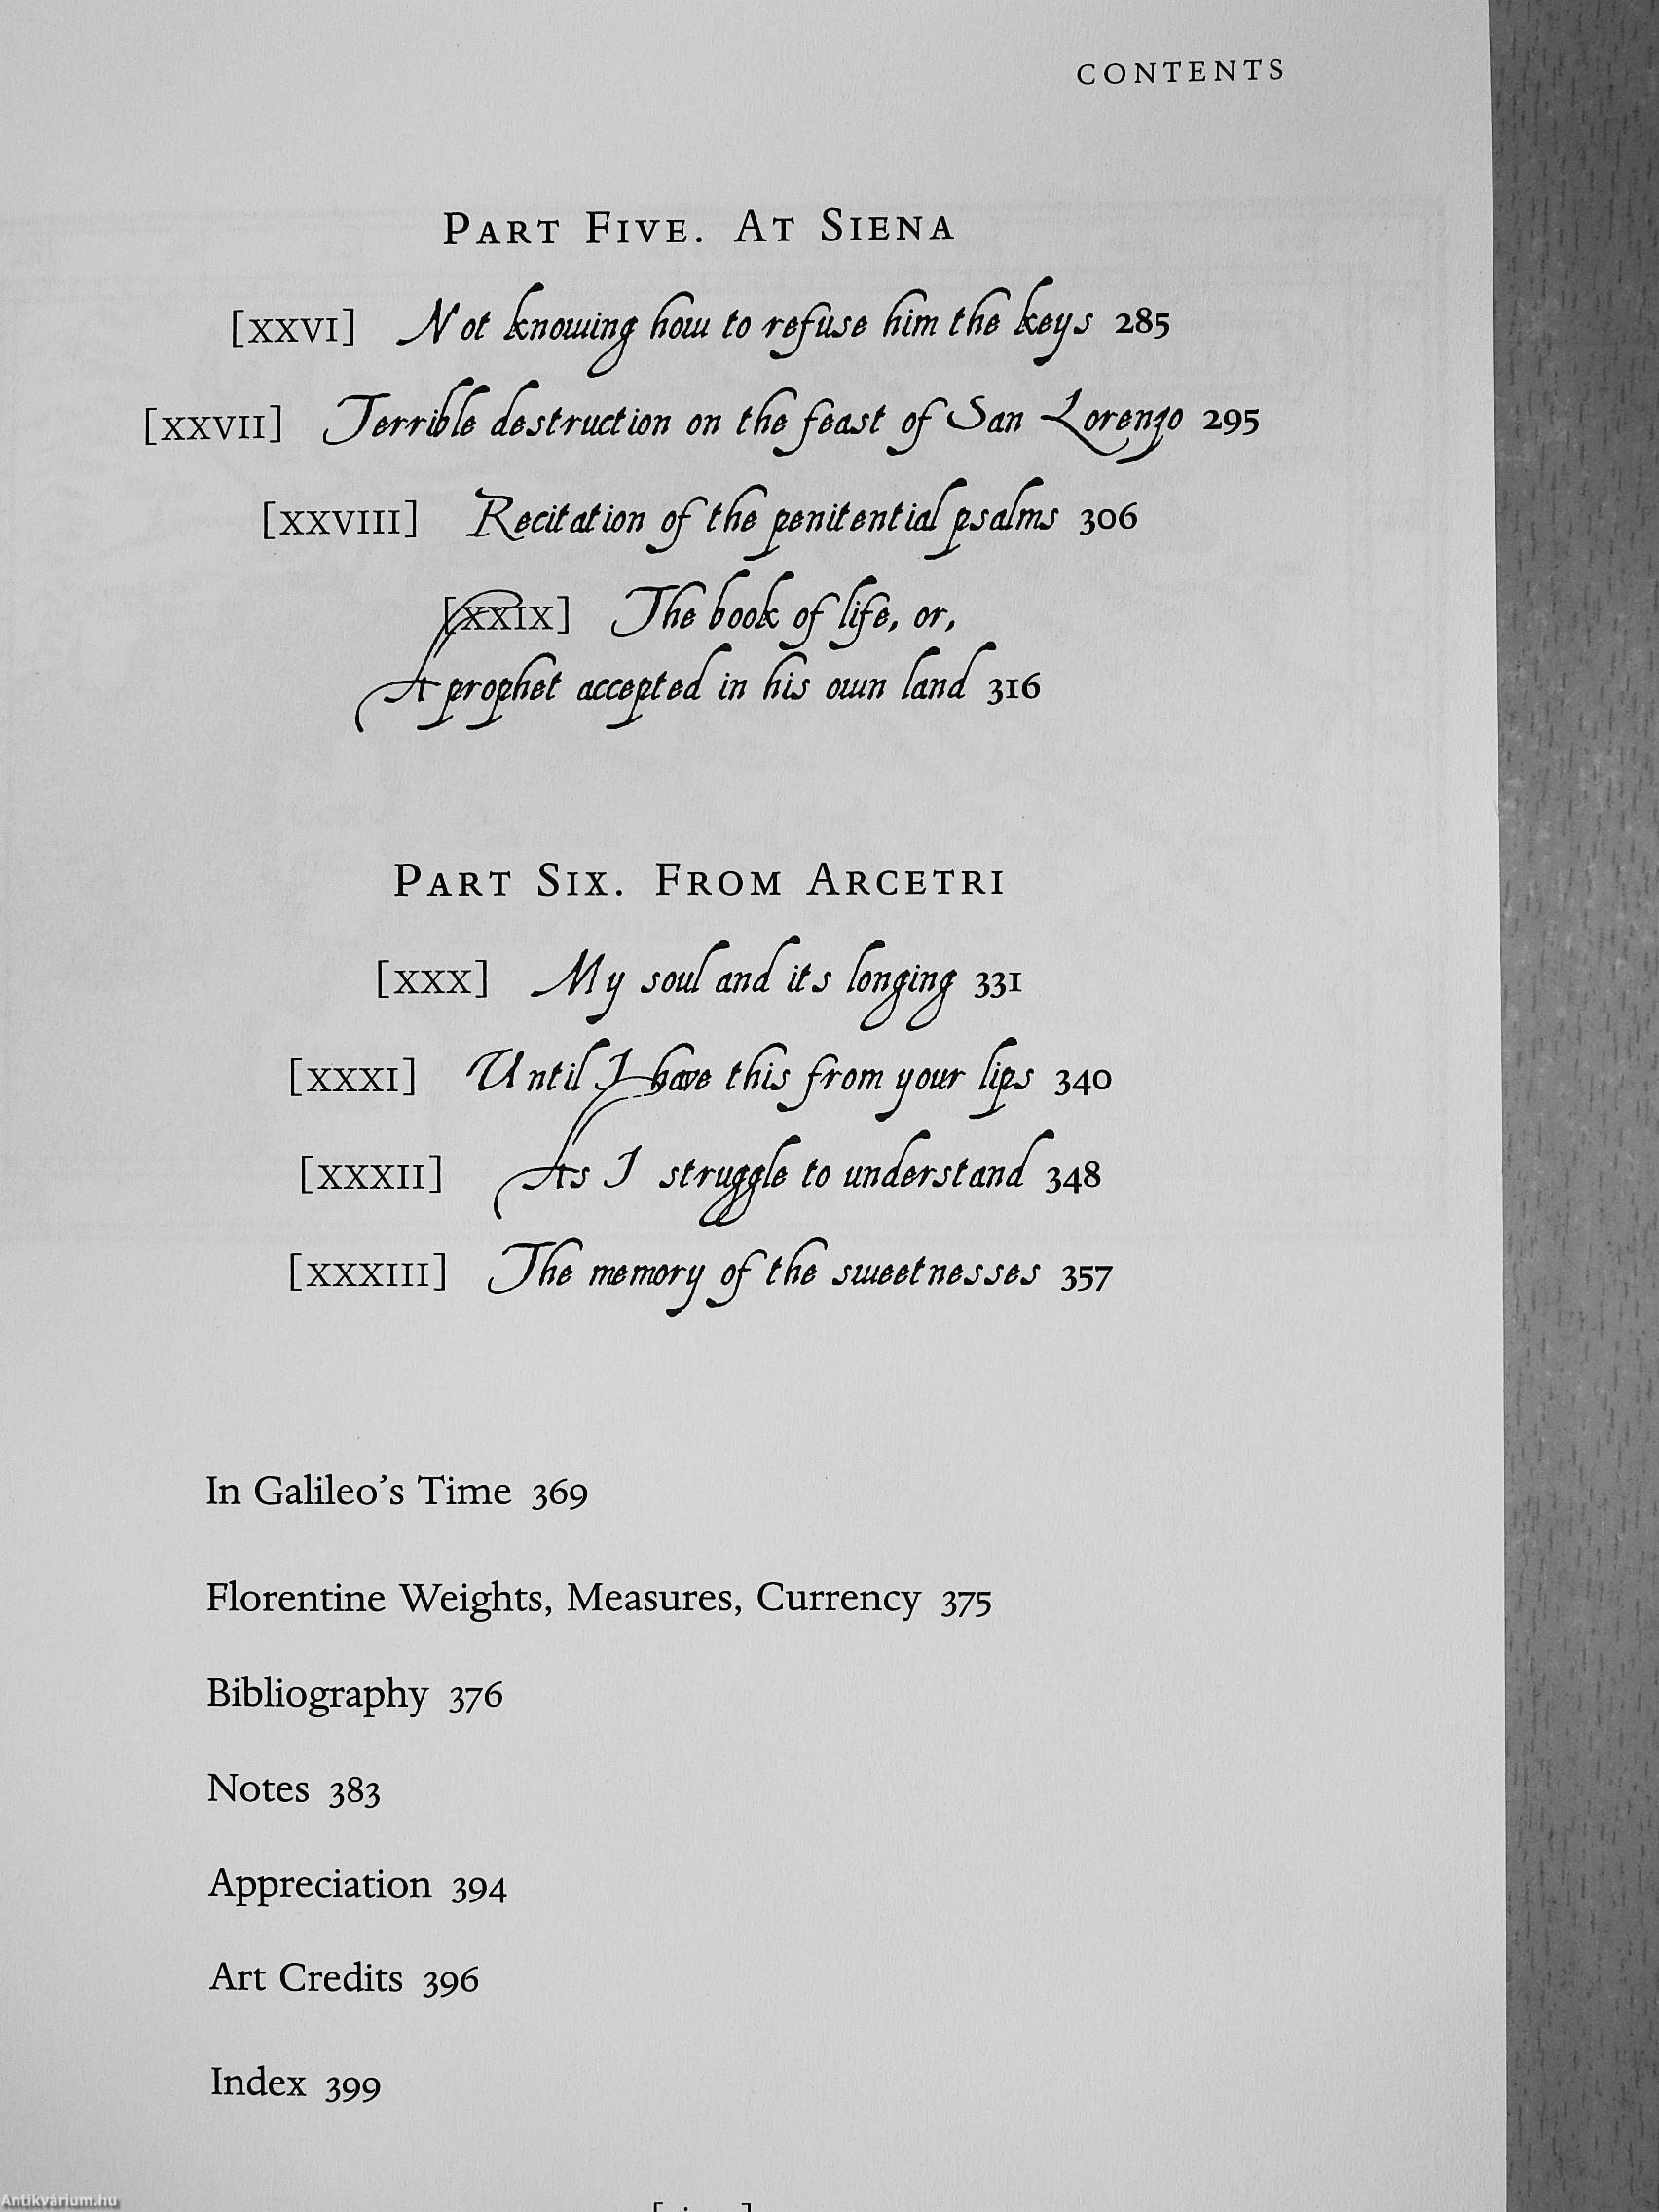 CONTENTS
PART FIVE. AT SIENA
[XXVI] Not knowing how to refuse him the keys 285
[XXVII] Terrible destruction on the feast of San Lorenzo 295
[XXVIII] Recitation of the penitential psalms 306
[XXIX] The book of life, or,
A prophet accepted in his own land 316
PART SIX. FROM ARCETRI
[XXX] My soul and its longing 331
[XXXI] Until I have this from your lips 340
[XXXII] As I struggle to understand 348
[XXXIII] The memory of the sweetnesses 357
In Galileo’s Time 369
Florentine Weights, Measures, Currency 375
Bibliography 376
Notes 383
Appreciation 394
Art Credits 396
Index 399
Antikvárium.hu